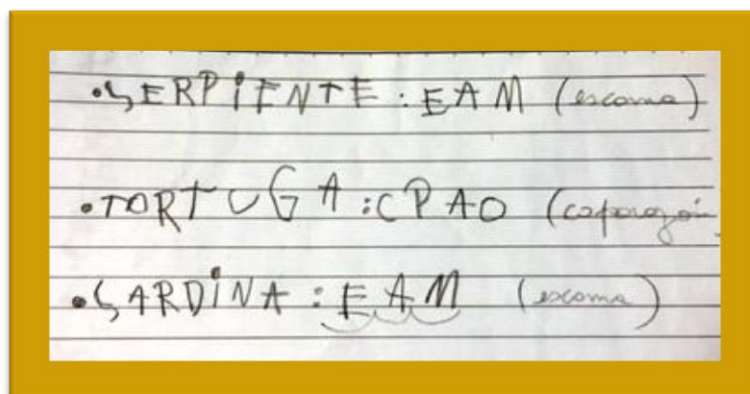 • SERPIENTE : EAM (escama)
• TORTUGA : CPAO (caparazón
• SARDINA : EAM (escama)